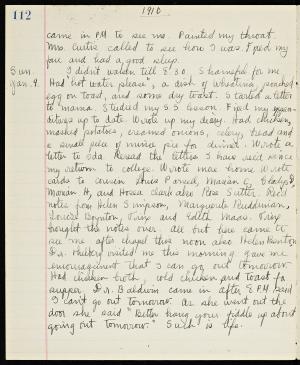 112
1910
came in P.M. to see me. Painted my throat.
Mrs. Curtis called to see how I was. Fixed my
fire and had a good sleep.
Sun. I didn't waken till 8:30. Shameful for me
Jan. 9. Had hot water please, a dish of wheatina, poached
egg on toast, and some dry toast. Started a letter
to mama. Studied my S.S. lesson. Fixed my
up to date. Wrote up my diary. Had chicken,
mashed potatoes, creamed onions, celery, bread and
a small piece of mince pie for dinner. Wrote a
letter to Eda. Reread the letters I have rec'd since
my return to college. Wrote home. Wrote
cards to cousin Marian E. Gladys D.
Marian H, and Hosea Clark also Rose Sutter. Rec'd
notes from Helen Simpson, Marguerite
Louise Boynton, and Edith Maas.
brought the notes over. All but here came to
see me after chapel this noon also Helen
Dr. visited me this morning gave me
encouragement that I can go out tomorrow.
Had chicken broth, cold chicken and toast for
supper. Dr. Baldwin came in after 8 P.M. said
I can't go out tomorrow. As she went out the
door she said "Better hang your fiddle up about
going out tomorrow." Such is life.